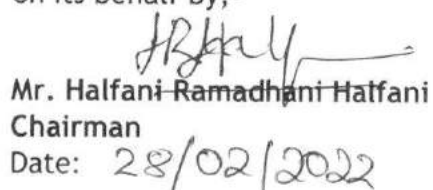 On its behalf by,
Mr. Halfani Ramadhani Halfani
Chairman
Date: 28/02/2022